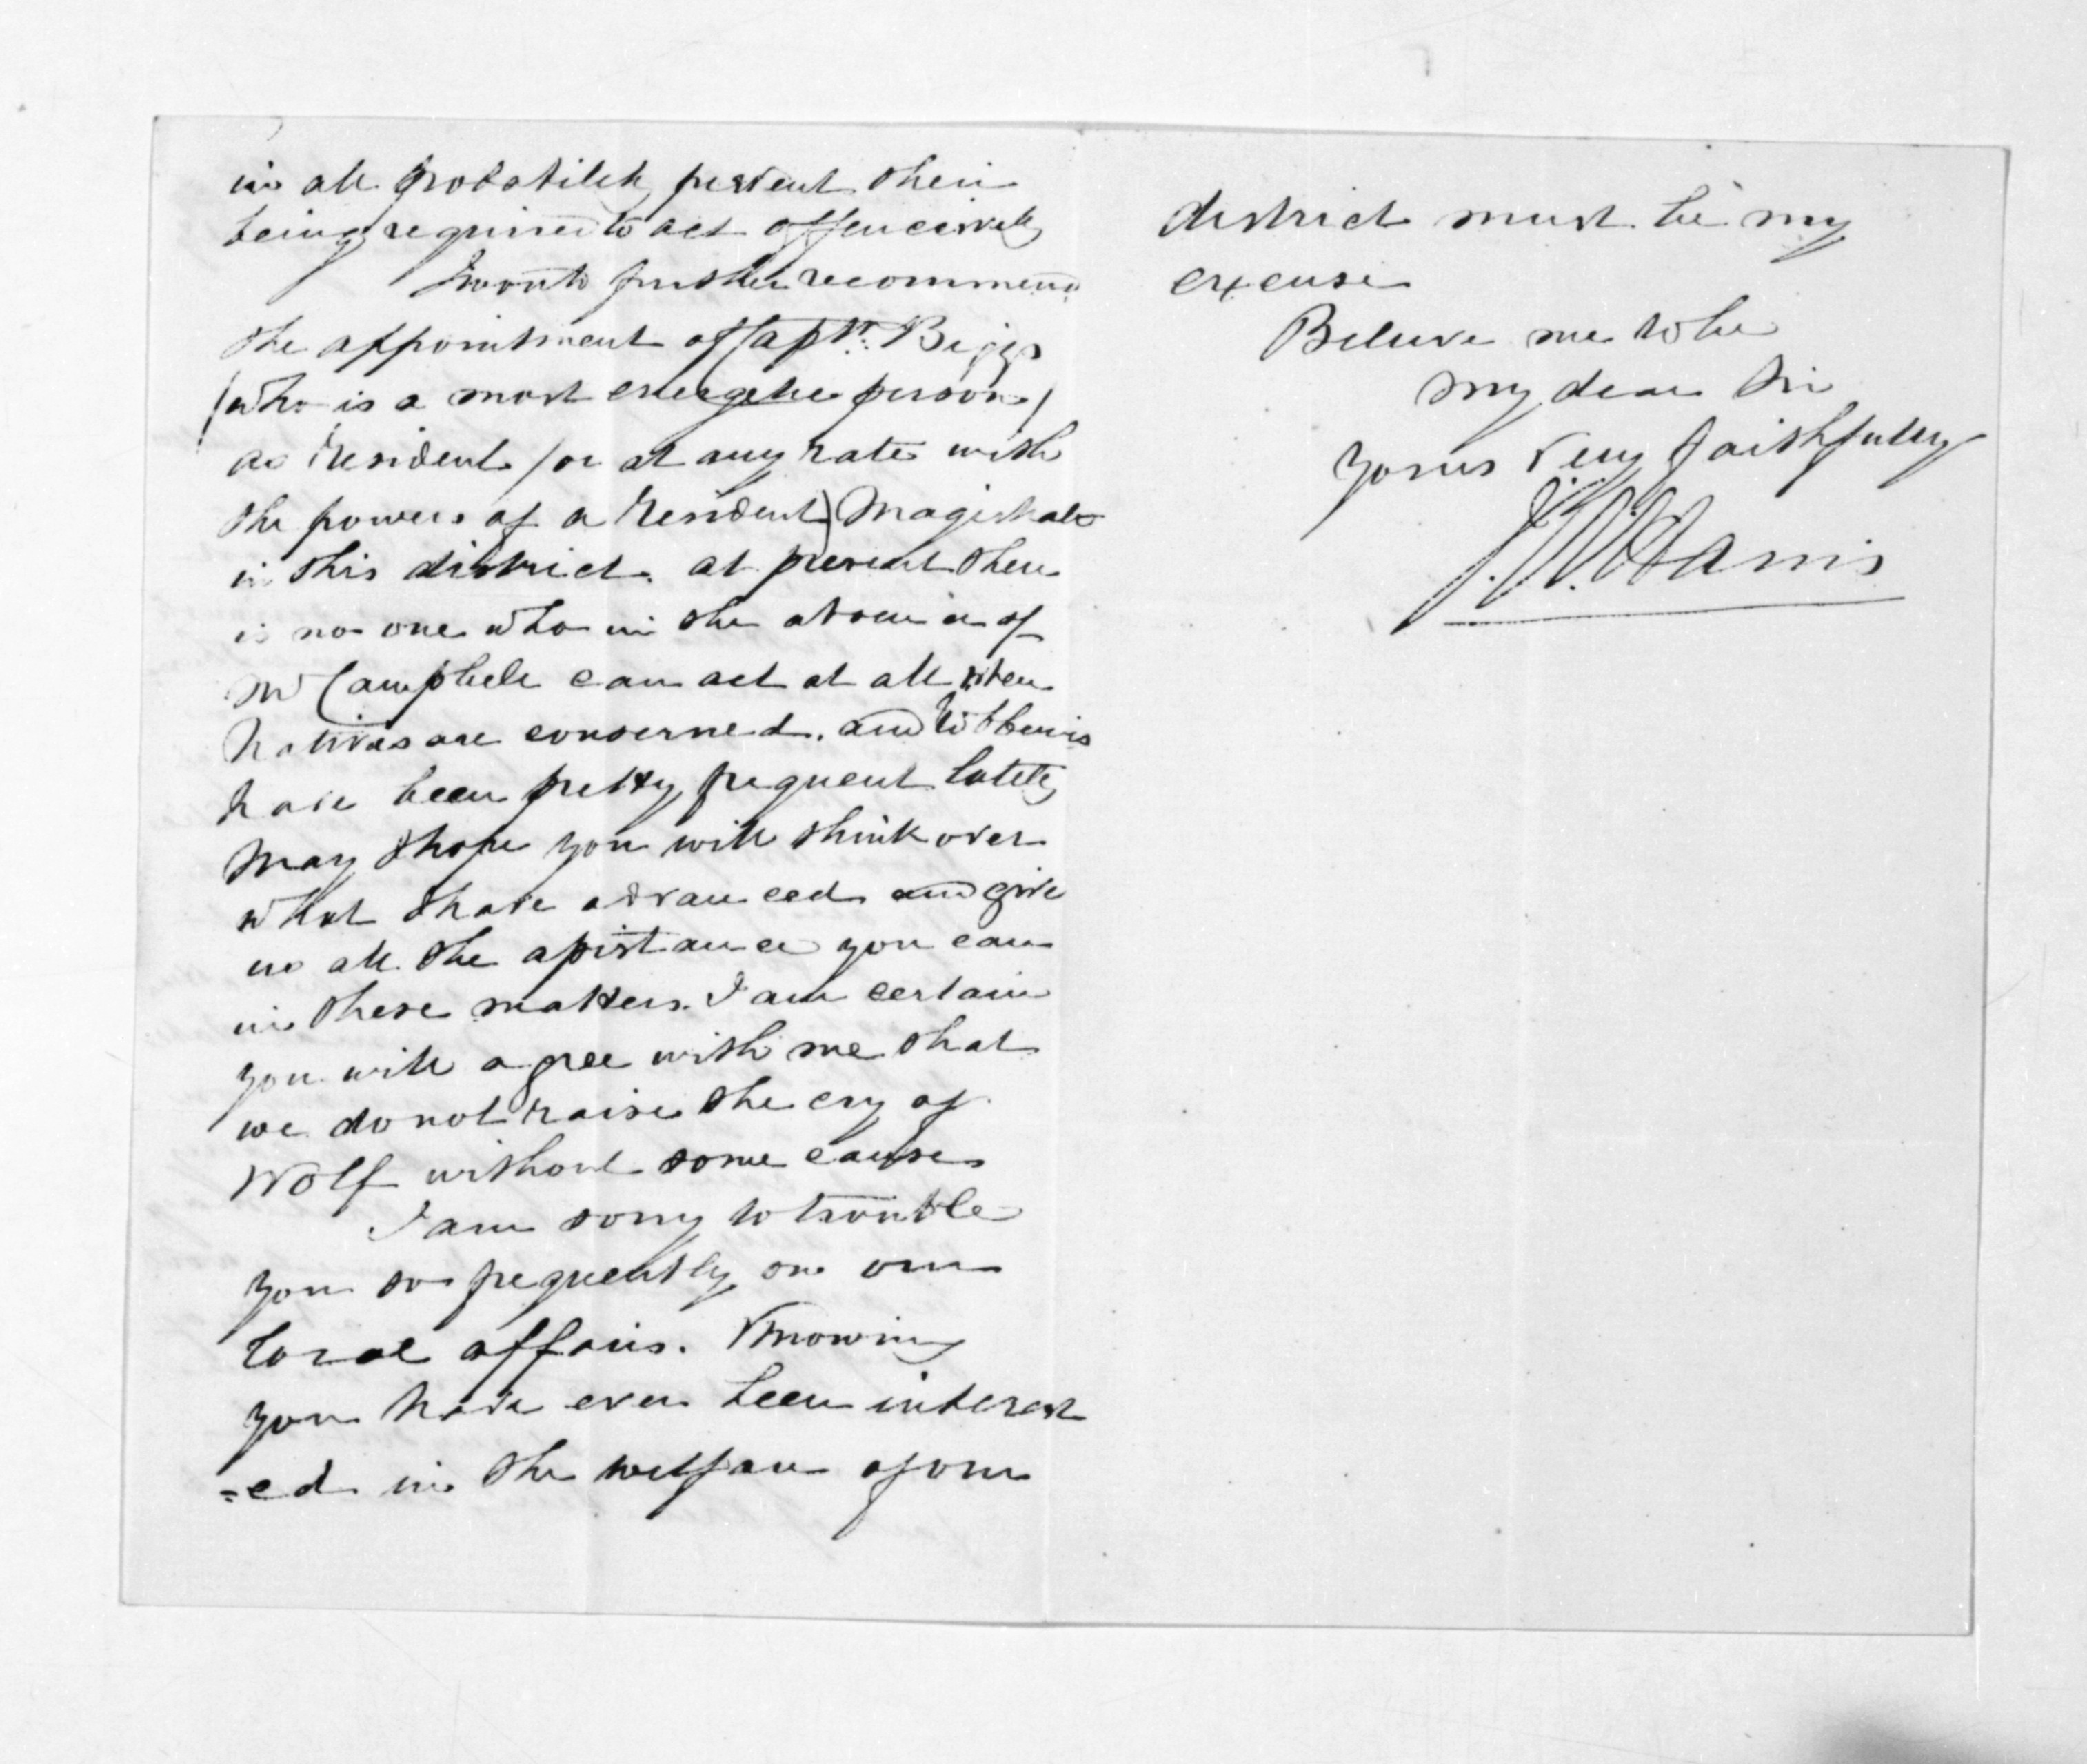 in all probability prevent their
being required to act offencively
I would further recommend
the appointment of Capt. Biggs
(who is a most energetic person)
as Resident (or at any rate with
the powers of a Resident) Magistrate
in this district. at present there
is no one who in the absence of
Mr Campbell can act at all when
Natives are concerned. and robberies
have been pretty frequent lately
May I hope you will think over
what I have advanced and give
us all the assistance you can
in these matters. I am certain
you will agree with me that
we do not raise the cry of
Wolf without some cause
I am sorry to trouble
you so frequently on our
local affairs. Knowing
you have ever been interest
=ed in the welfare of our
district must be my
excuse
Believe me to be
My dear Sir
Yours very faithfully
J. W. Harris